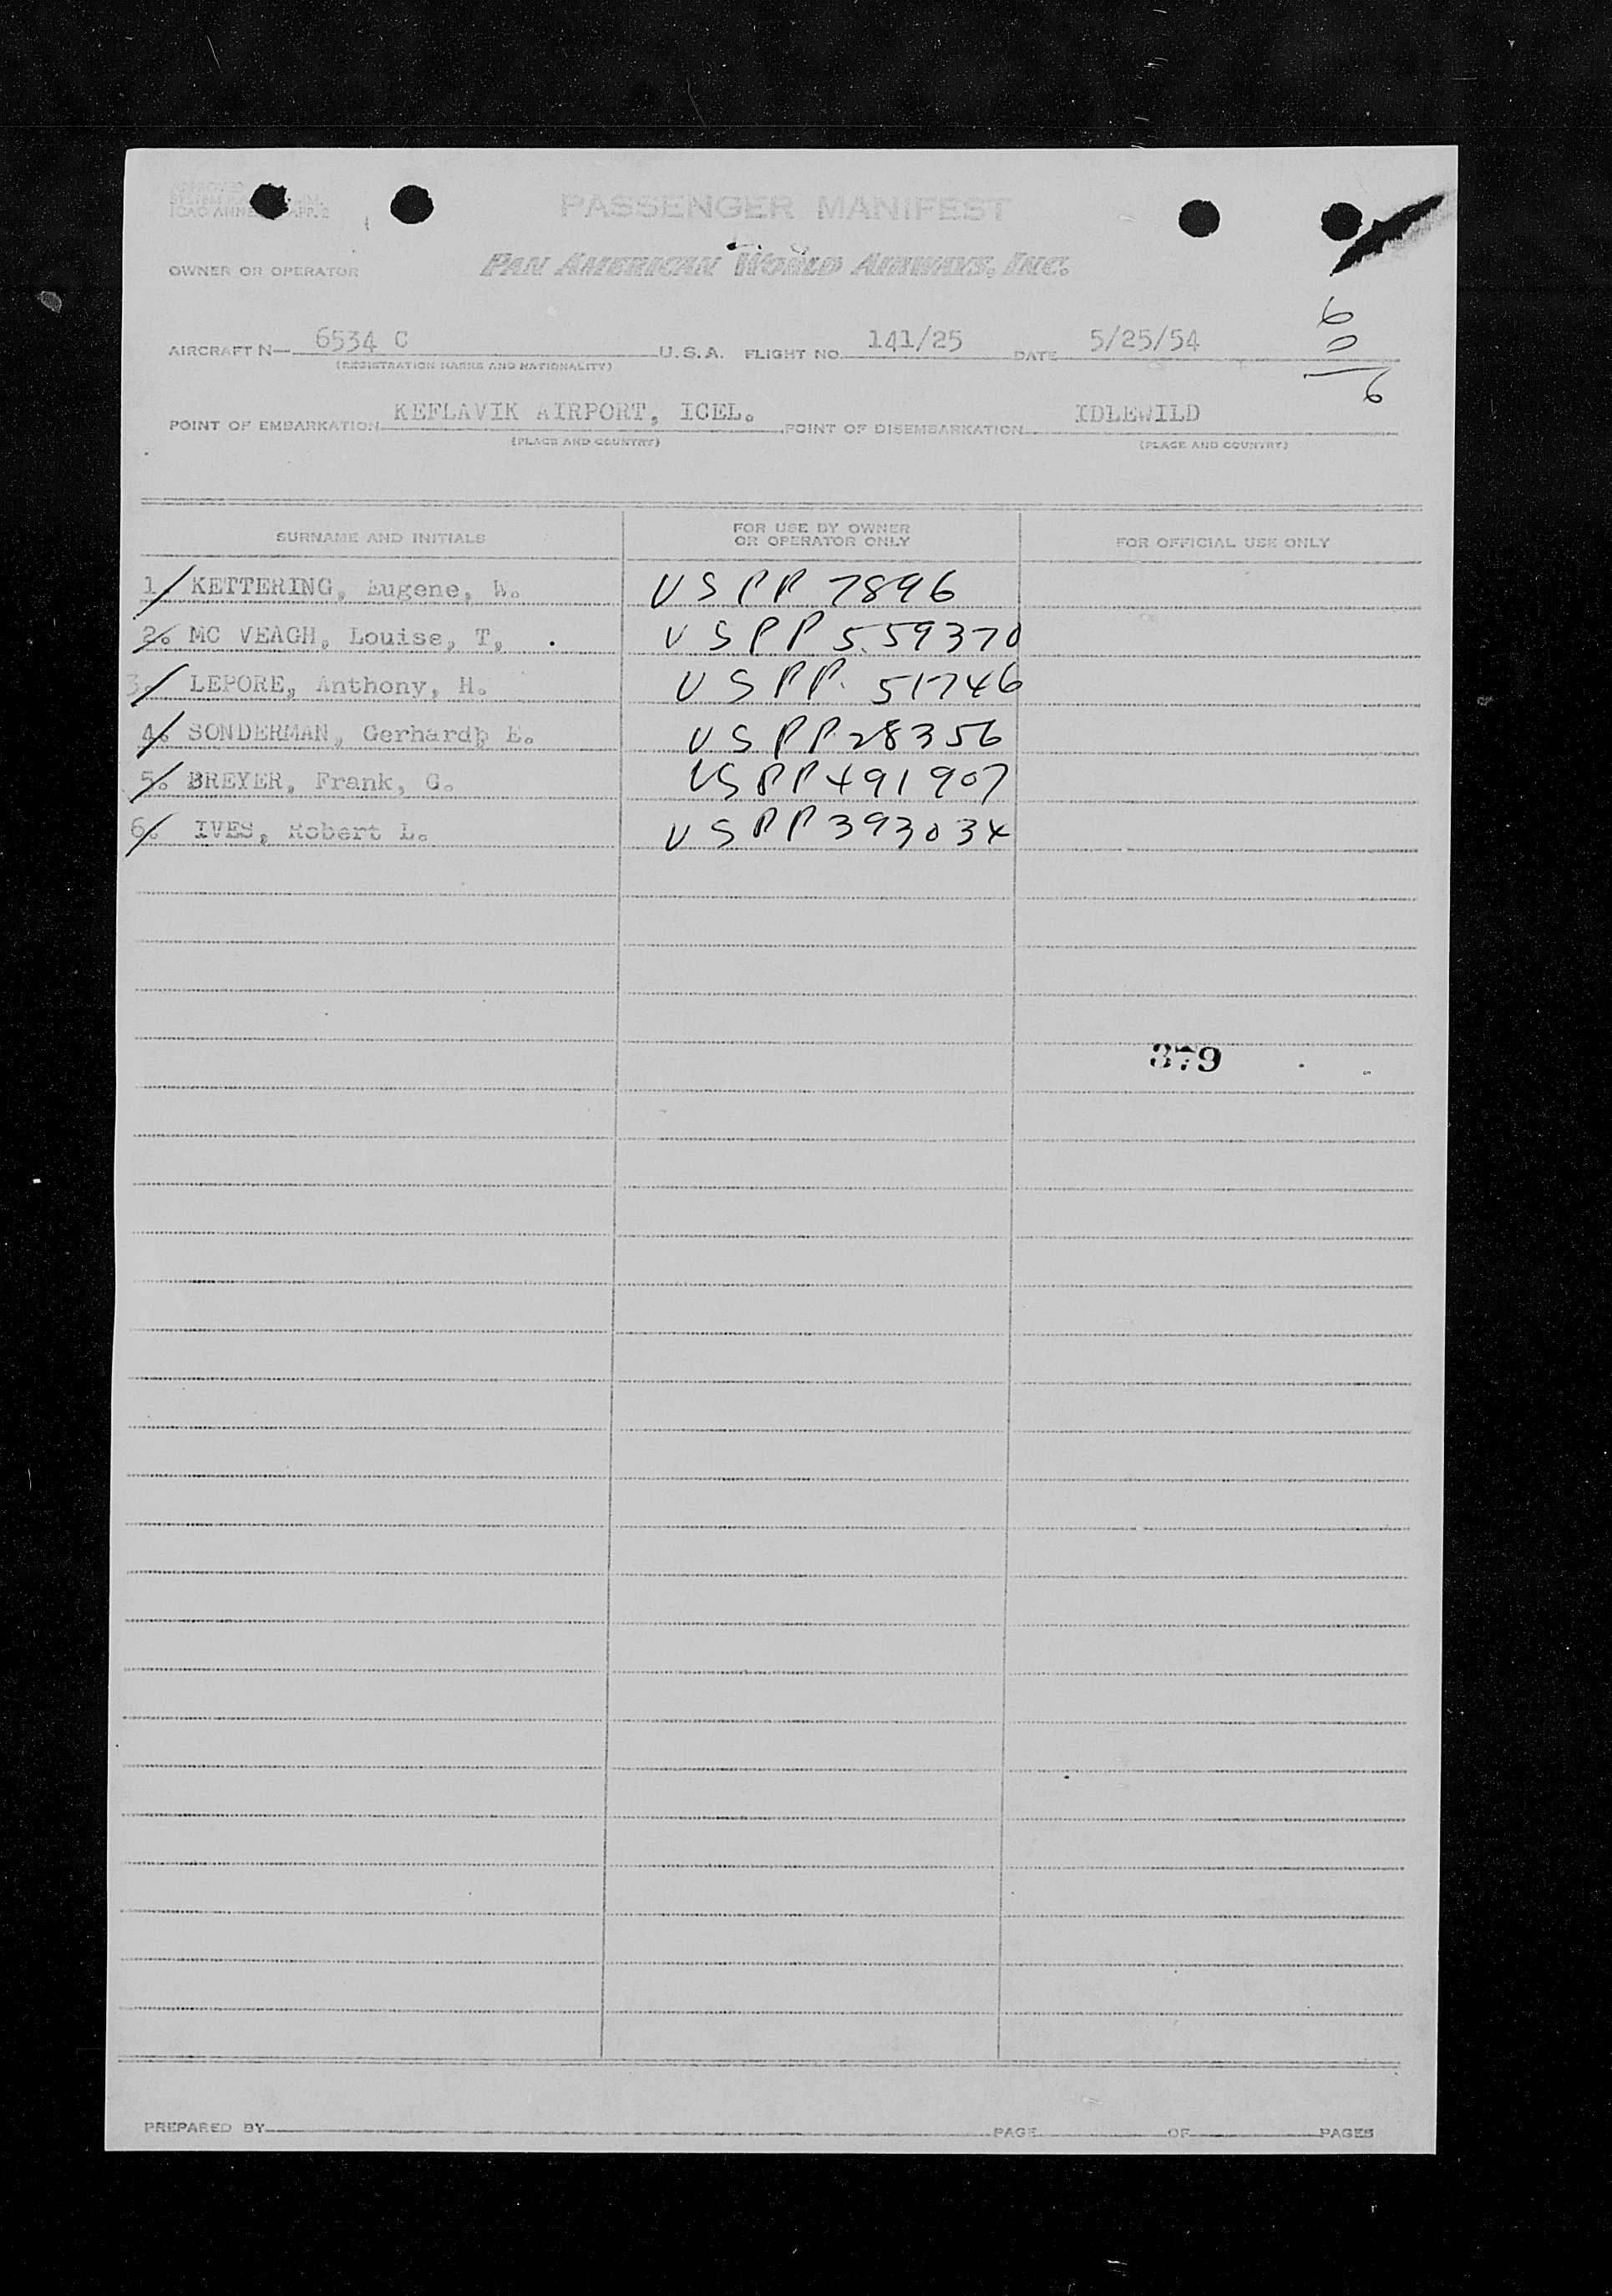 APPROVED
SYSTEM
ICAO ANNE APP. 2
PASSENGER MANIFEST
OWNER OR OPERATOR PAN AMERICAN WORLD AIRWAYS, INC.
AIRCRAFT N— 6534 C U.S.A. FLIGHT NO. 141/25 DATE 5/25/54
(REGISTRATION MARKS AND NATIONALITY)
6
0
6
POINT OF EMBARKATION KEFLAVIK AIRPORT, ICEL. POINT OF DISEMBARKATION IDLEWILD
(PLACE AND COUNTRY) (PLACE AND COUNTRY)
SURNAME AND INITIALS FOR USE BY OWNER OR OPERATOR ONLY FOR OFFICIAL USE ONLY
1. KETTERING, Eugene, W. USPP 7896
2. MC VEAGH, Louise, T, . USPP 559370
3. LEPORE, Anthony, H. USPP 51746
4. SONDERMAN, Gerhard E. USPP 28356
5. BREYER, Frank, G. USPP 491907
6. IVES, Robert L. USPP 393034
379
PREPARED BY PAGE OF PAGES